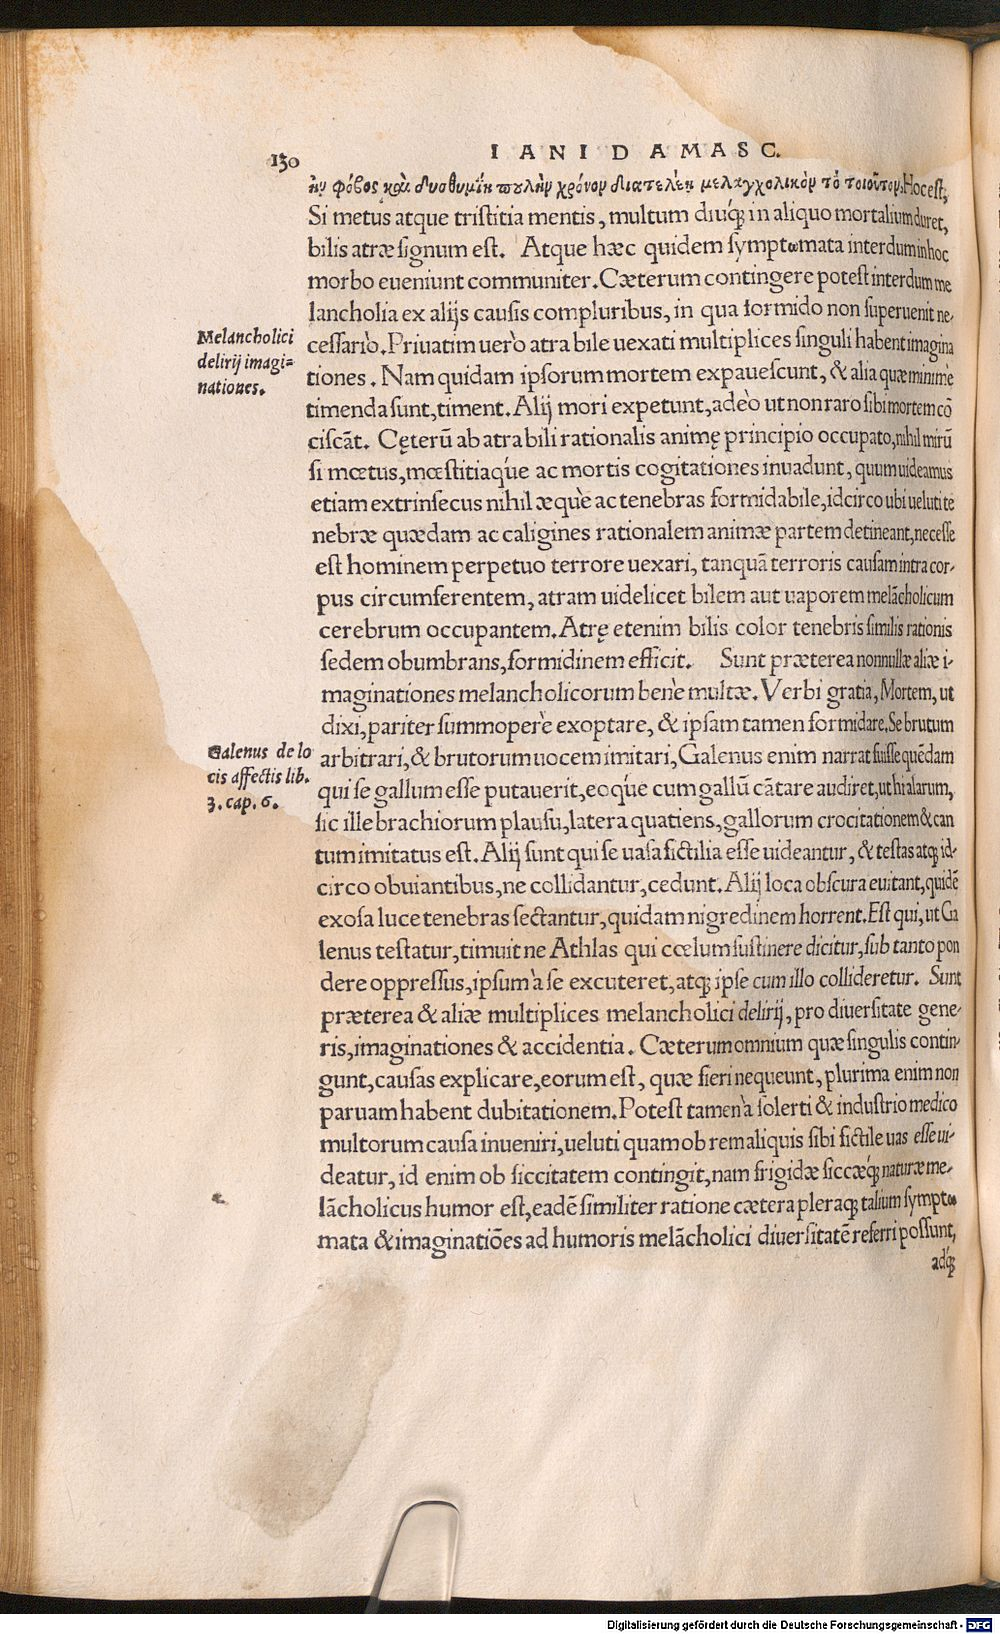 130
IANI DAMASC.
ἢν φόβος καὶ δυσθυμίη πουλὺν χρόνον διατελέῃ μελαγχολικὸν τὸ τοιοῦτον. Hoc est,
Si metus atque tristitia mentis, multum diuq́; in aliquo mortalium duret,
bilis atræ signum est. Atque hæc quidem symptωmata interdum in hoc
morbo eueniunt communiter. Cæterum contingere potest interdum me
lancholia ex alijs causis compluribus, in qua formido non superuenit ne-
Melancholici
delirij imagi=
nationes.
cessariò. Priuatim uerò atra bile uexati multiplices singuli habent imagina
tiones. Nam quidam ipsorum mortem expauescunt, & alia quæ minimè
timenda sunt, timent. Alij mori expetunt, adeò ut non raro sibi mortem cō
ciscāt. Cęterū ab atra bili rationalis animę principio occupato, nihil mirū
si mœtus, mœstitiaq́ue ac mortis cogitationes inuadunt, quum uideamus
etiam extrinsecus nihil æquè ac tenebras formidabile, idcirco ubi ueluti te
nebræ quædam ac caligines rationalem animæ partem detineant, necesse
est hominem perpetuo terrore uexari, tanquā terroris causam intra cor-
pus circumferentem, atram uidelicet bilem aut uaporem melācholicum
cerebrum occupantem. Atrę etenim bilis color tenebris similis rationis
sedem obumbrans, formidinem efficit. Sunt præterea nonnullæ aliæ i-
maginationes melancholicorum benè multæ. Verbi gratia, Mortem, ut
dixi, pariter summoperè exoptare, & ipsam tamen formidare, Se brutum
Galenus de lo
cis affectis lib.
3. cap. 6.
arbitrari, & brutorum uocem imitari, Galenus enim narrat fuisse quēdam
qui se gallum esse putauerit, eoq́ue cum gallū cātare audiret, ut hi alarum,
sic ille brachiorum plausu, latera quatiens, gallorum crocitationem & can
tum imitatus est. Alij sunt qui se uasa fictilia esse uideantur, & testas atq; id-
circo obuiantibus, ne collidantur, cedunt. Alij loca obscura euitant, quidē
exosa luce tenebras sectantur, quidam nigredinem horrent. Est qui, ut Ga
lenus testatur, timuit ne Athlas qui cœlum sustinere dicitur, sub tanto pon
dere oppressus, ipsum à se excuteret, atq; ipse cum illo collideretur. Sunt
præterea & aliæ multiplices melancholici delirij, pro diuersitate gene-
ris, imaginationes & accidentia. Cæterum omnium quæ singulis contin-
gunt, causas explicare, eorum est, quæ fieri nequeunt, plurima enim non
paruam habent dubitationem. Potest tamen à solerti & industrio medico
multorum causa inueniri, ueluti quam ob rem aliquis sibi fictile uas esse ui-
deatur, id enim ob siccitatem contingit, nam frigidæ siccæq́; naturæ me-
lācholicus humor est, eadē similiter ratione cætera pleraq; talium symptω
mata & imaginatiōes ad humoris melācholici diuersitatē referri possunt,
adq́;
Digitalisierung gefördert durch die Deutsche Forschungsgemeinschaft - DFG